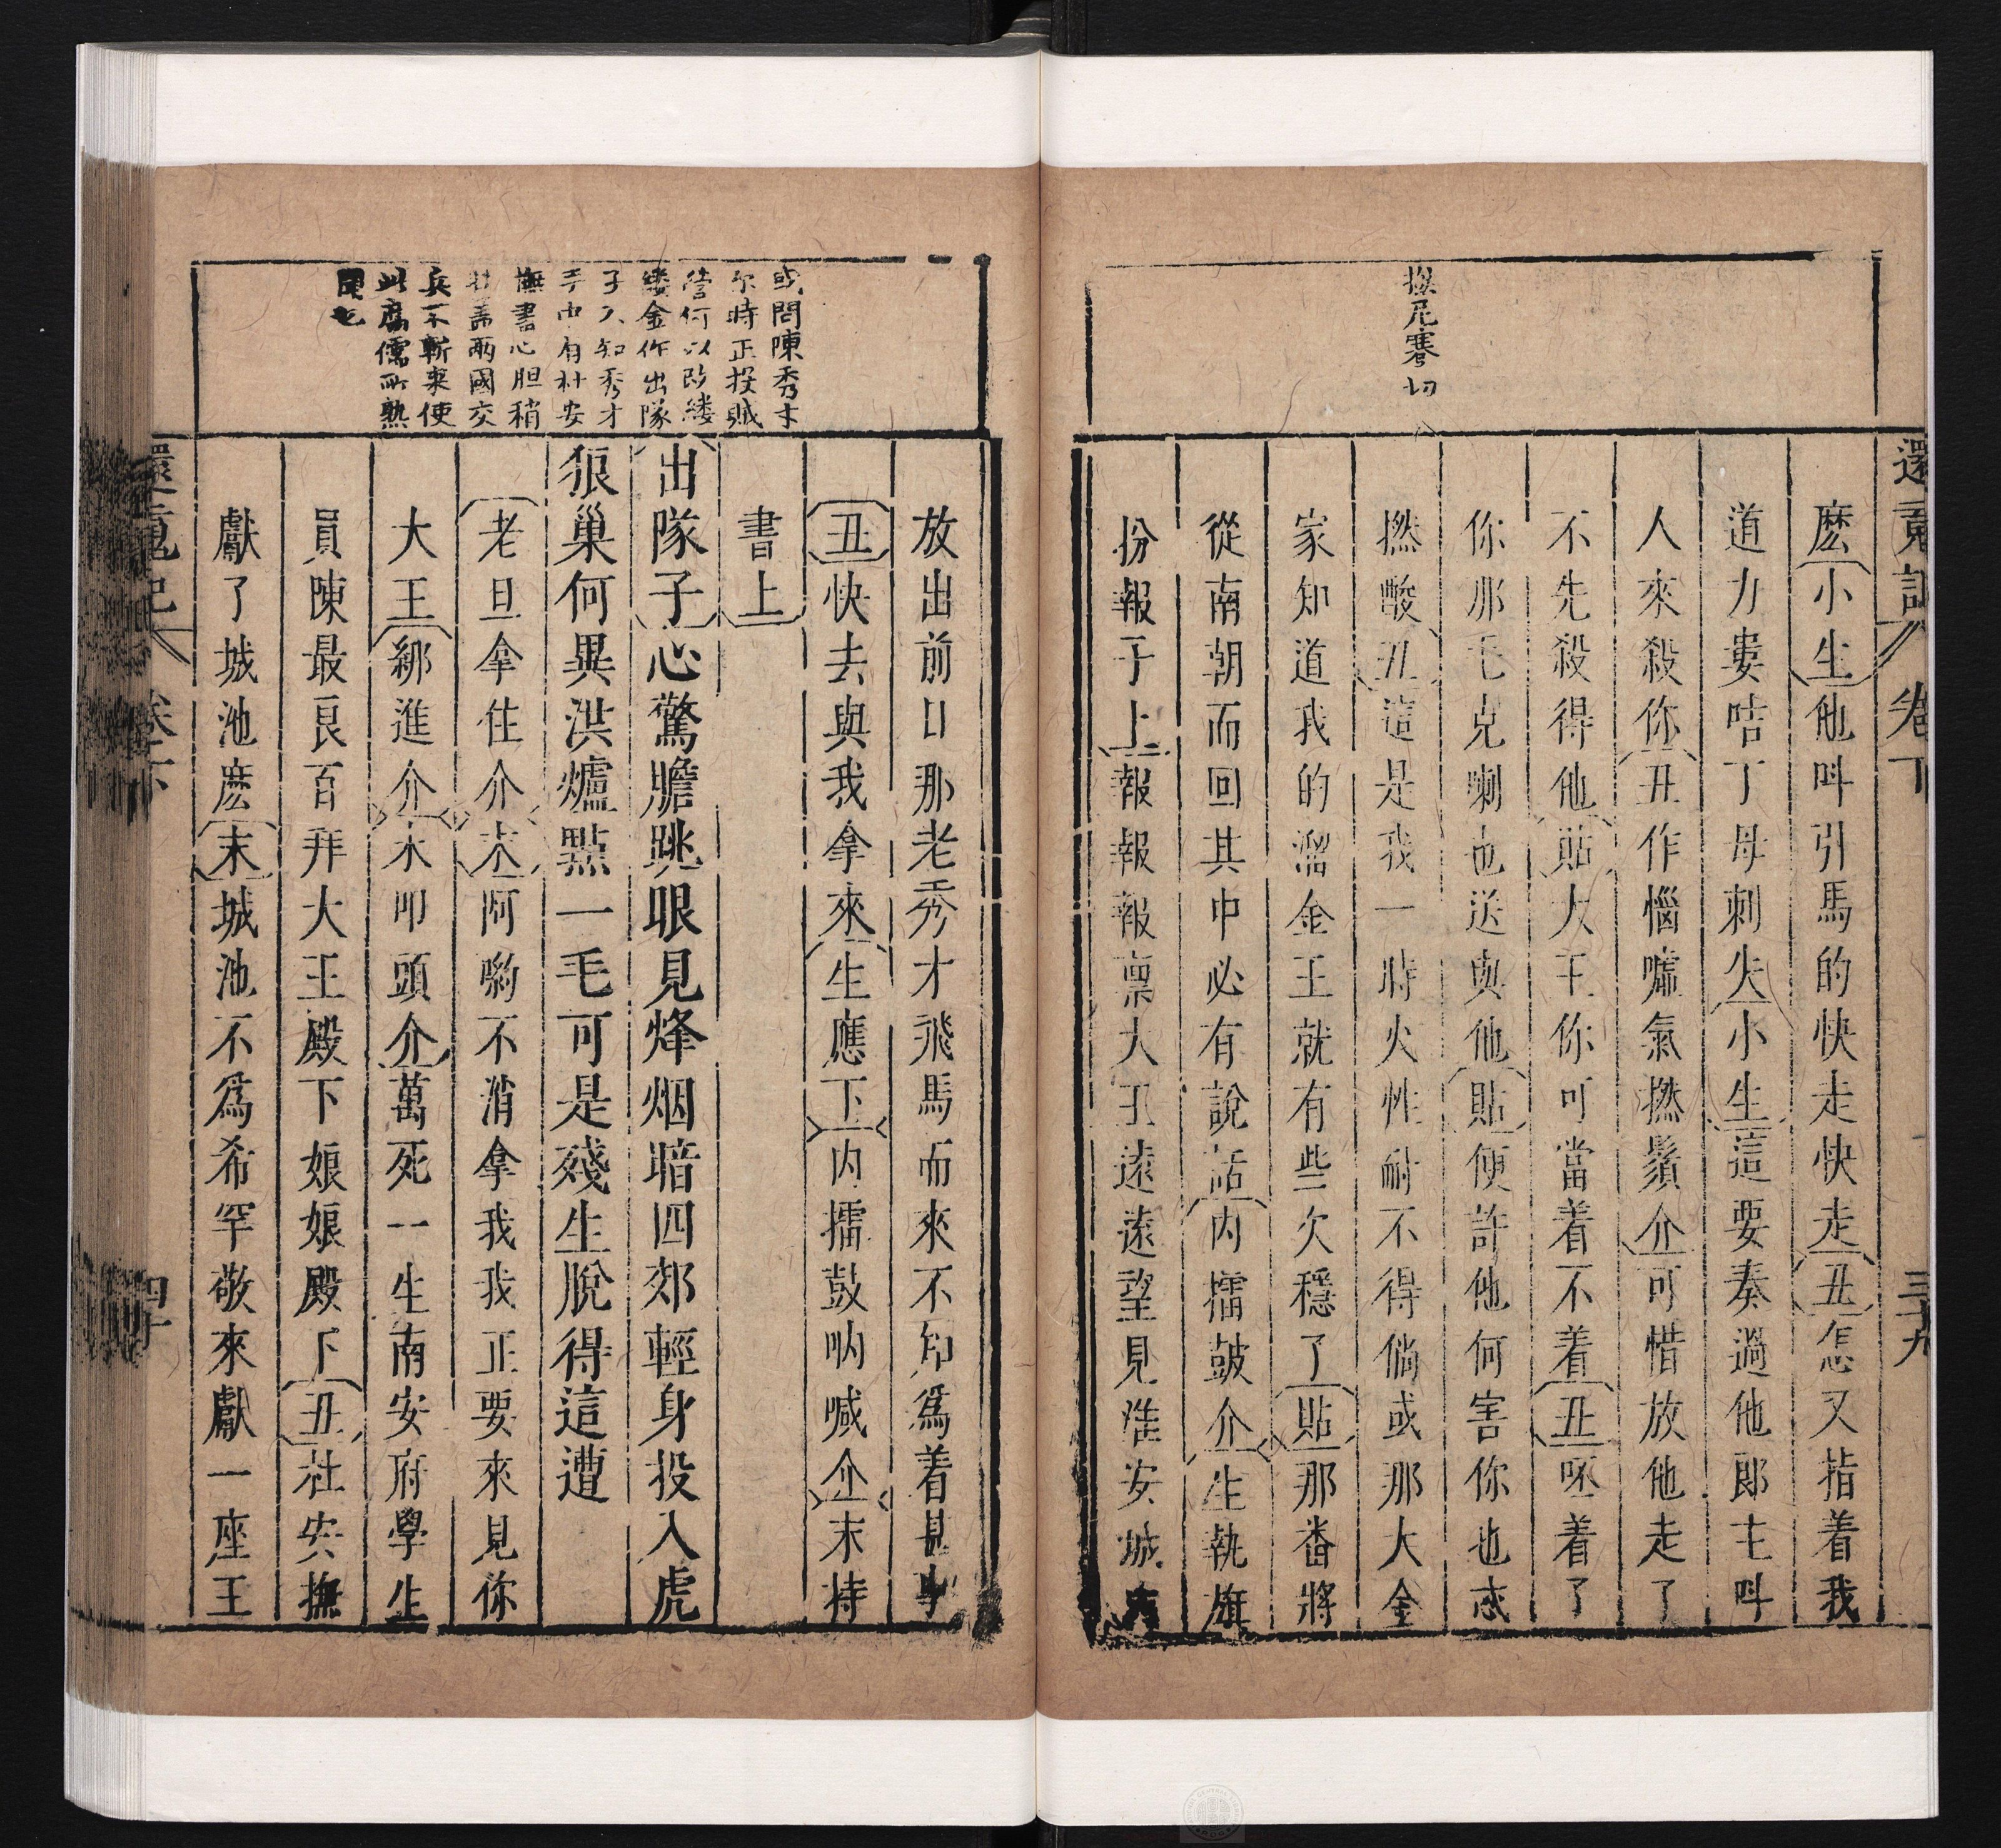 還䰟記 卷下 三十九
撚尼蹇切
麽小生他呌引馬的快走快走丑怎又指着我
道力婁咭丁母剌失小生這要奏過他郎主呌
人來殺你丑作惱噓氣撚鬚介可惜放他走了
不先殺得他貼大王你可當着不着丑呸着了
你那毛克喇也送與他貼便許他何害你也忒
撚酸丑這是我一時火性耐不得倘或那大金
家知道我的溜金王就有些欠穩了貼那番將
從南朝而回其中必有說話内擂鼓介生執旗
扮報子上報報報禀大王遠遠望見淮安城
或問陳秀才
尔時正投賊
營何以改縷
縷金作出隊
子不知秀才
手中有杜安
撫書心胆稍
壮盖兩國交
兵不斬來使
此腐儒所熟
聞也
放出前口那老秀才飛馬而來不知爲着甚事
丑快去與我拿來生應下内擂鼓吶喊介末持
書上
出隊子心驚膽跳眼見烽烟暗四郊輕身投入虎
狼巢何異洪爐點一毛可是殘生脫得這遭
老旦拿住介末阿喲不消拿我我正要來見你
大王綁進介末叩頭介萬死一生南安府學生
員陳最良百拜大王殿下娘娘殿下丑杜安撫
獻了城池麽末城池不爲希罕敬來獻一座王
還䰟記 卷下 四十